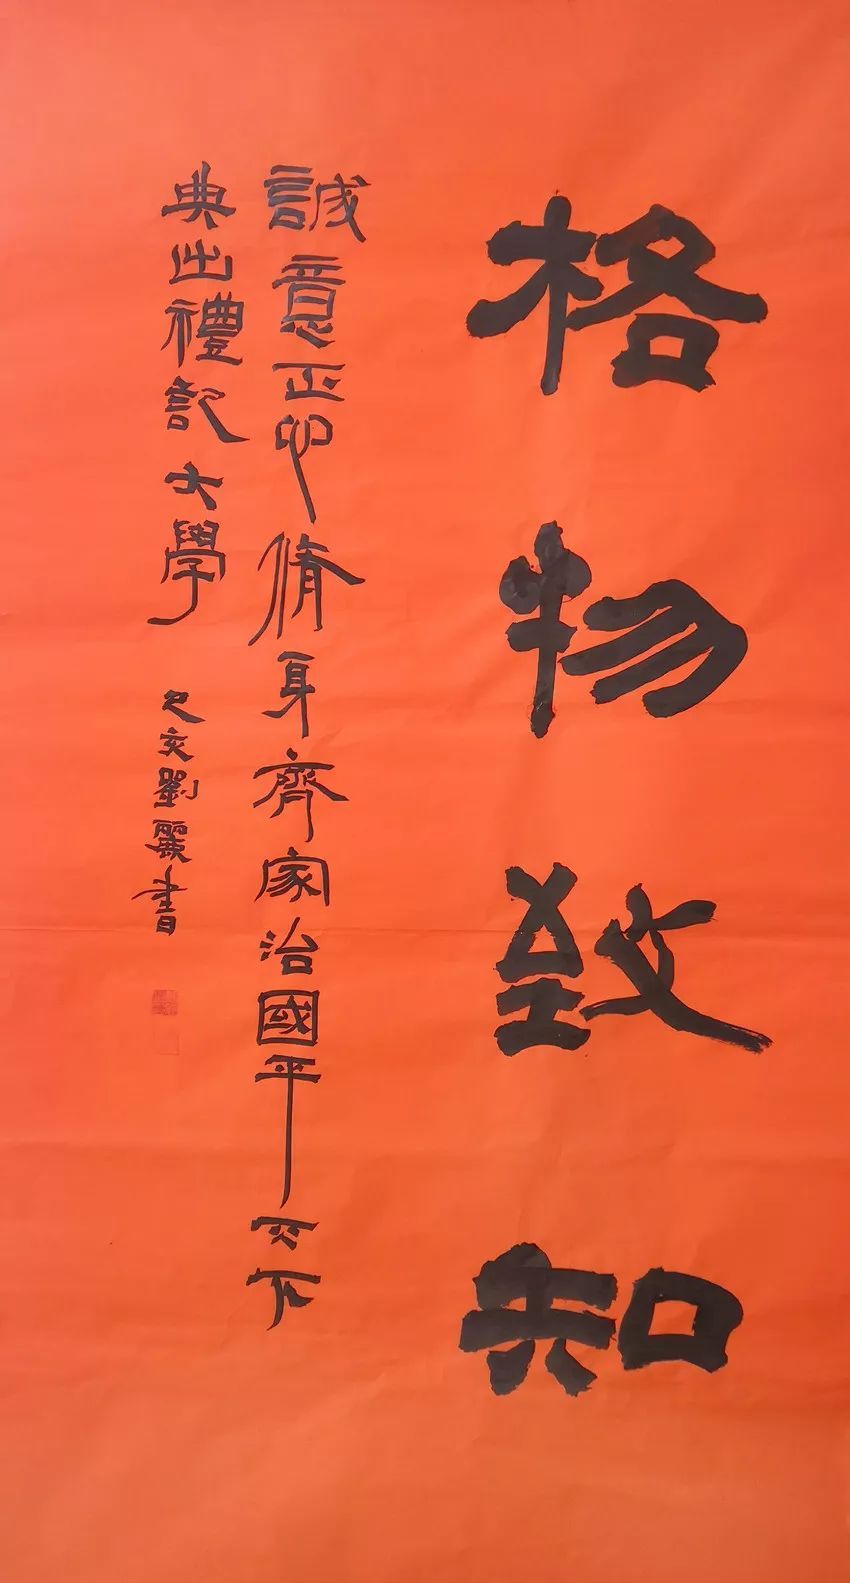 格物致知
誠意正心脩身齊家治國平天下
典出禮記大學
己亥劉麗書